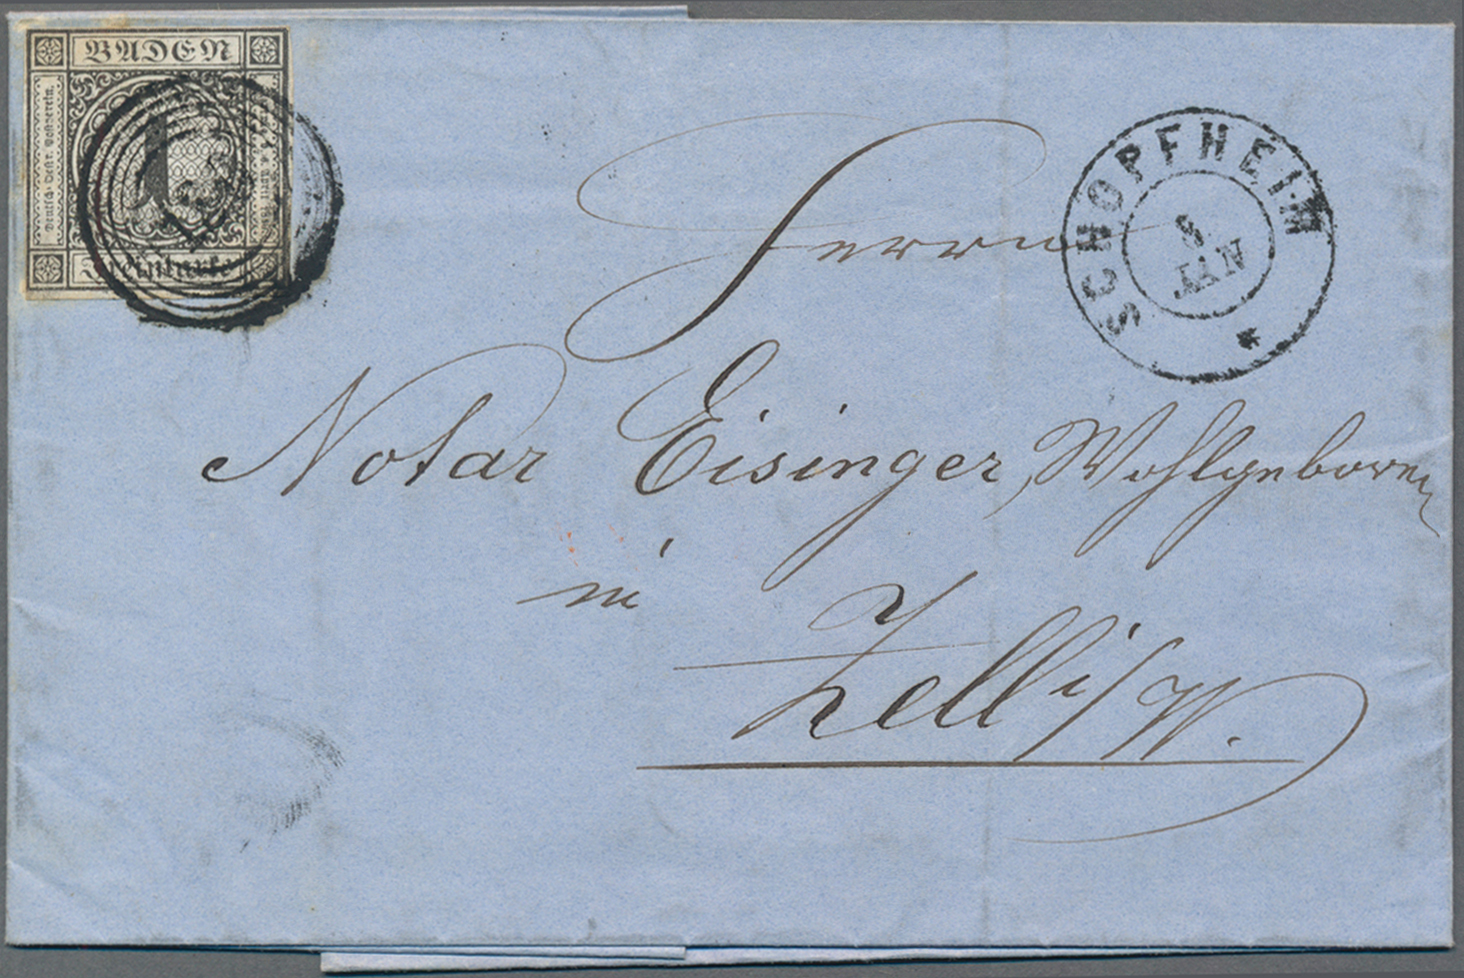 BADEN
Deutsch-Oestr. Postverein.
1
Freimarke
SCHOPFHEIM
8
JAN
*
Herrn
Notar Eisinger, Wohlgeboren
in
Zell i/W.